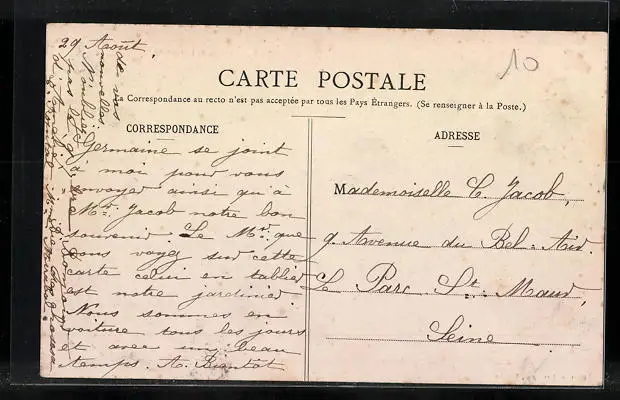 10
CARTE POSTALE
La Correspondance au recto n'est pas acceptée par tous les Pays Étrangers. (Se renseigner à la Poste.)
CORRESPONDANCE
ADRESSE
29 Août,
Germaine se joint
à moi pour vous
envoyer ainsi qu'à
Mme Jacob notre bon
souvenir. Le Mr que
vous voyez sur cette
carte celui en tablier
est notre jardinier.
Nous sommes en
voiture tous les jours
et avec un beau
temps. A. Bientôt
de vos
nouvelles.
N'oubliez
pas
Mademoiselle C. Jacob,
9. Avenue du Bel-Air.
Le Parc St Maur,
Seine